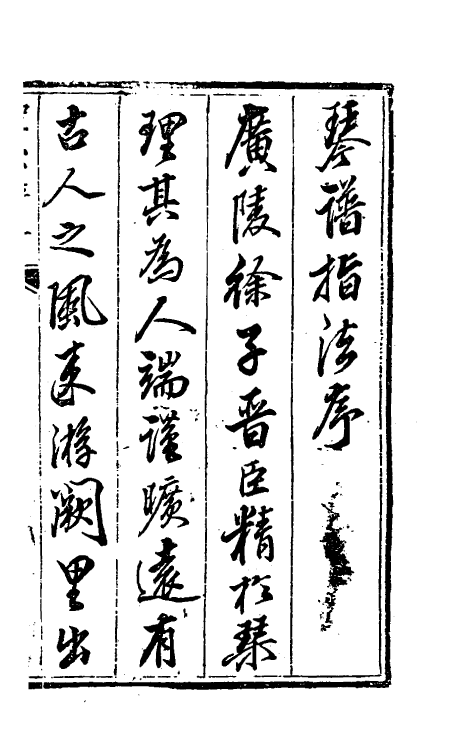 琴譜指法序
廣陵徐子晉臣精於琴
理其為人端謹曠遠有
古人之風來游闕里出